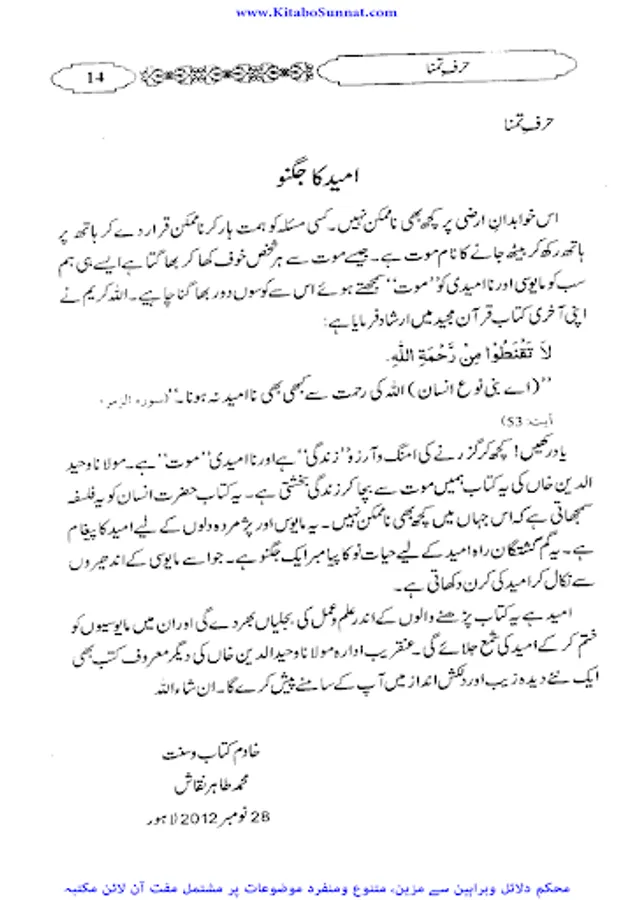 www.KitaboSunnat.com
14
حرفِ تمنا
حرفِ تمنا
امید کا جگنو
اس خوابدانِ ارضی پر کچھ بھی ناممکن نہیں۔ کسی مسئلہ کو ہمت ہار کر ناممکن قرار دے کر ہاتھ پر
ہاتھ رکھ کر بیٹھ جانے کا نام موت ہے۔ جیسے موت سے ہر شخص خوف کھا کر بھاگتا ہے ایسے ہی ہم
سب کو مایوسی اور ناامیدی کو ”موت“ سمجھتے ہوئے اس سے کوسوں دور بھاگنا چاہیے۔ اللہ کریم نے
اپنی آخری کتاب قرآن مجید میں ارشاد فرمایا ہے:
لاَ تَقْنَطُوْا مِنْ رَّحْمَةِ اللّٰهِ.
”(اے بنی نوع انسان) اللہ کی رحمت سے کبھی بھی ناامید نہ ہونا۔“ (سورہ الزمر،
آیت: 53)
یاد رکھیں! کچھ کر گزرنے کی امنگ و آرزو ”زندگی“ ہے اور ناامیدی ”موت“ ہے۔ مولانا وحید
الدین خاں کی یہ کتاب ہمیں موت سے بچا کر زندگی بخشتی ہے۔ یہ کتاب حضرت انسان کو یہ فلسفہ
سمجھاتی ہے کہ اس جہاں میں کچھ بھی ناممکن نہیں۔ یہ مایوس اور پژمردہ دلوں کے لیے امید کا پیغام
ہے۔ یہ گم گشتگان راہ امید کے لیے حیات نو کا پیامبر ایک جگنو ہے۔ جو اسے مایوسی کے اندھیروں
سے نکال کر امید کی کرن دکھاتی ہے۔
امید ہے یہ کتاب پڑھنے والوں کے اندر علم و عمل کی بجلیاں بھر دے گی اور ان میں مایوسیوں کو
ختم کر کے امید کی شمع جلائے گی۔ عنقریب ادارہ مولانا وحید الدین خاں کی دیگر معروف کتب بھی
ایک نئے دیدہ زیب اور دلکش انداز میں آپ کے سامنے پیش کرے گا۔ ان شاء اللہ
خادم کتاب و سنت
محمد طاہر نقاش
28 نومبر 2012 لاہور
محکم دلائل وبراہین سے مزین، متنوع ومنفرد موضوعات پر مشتمل مفت آن لائن مکتبہ